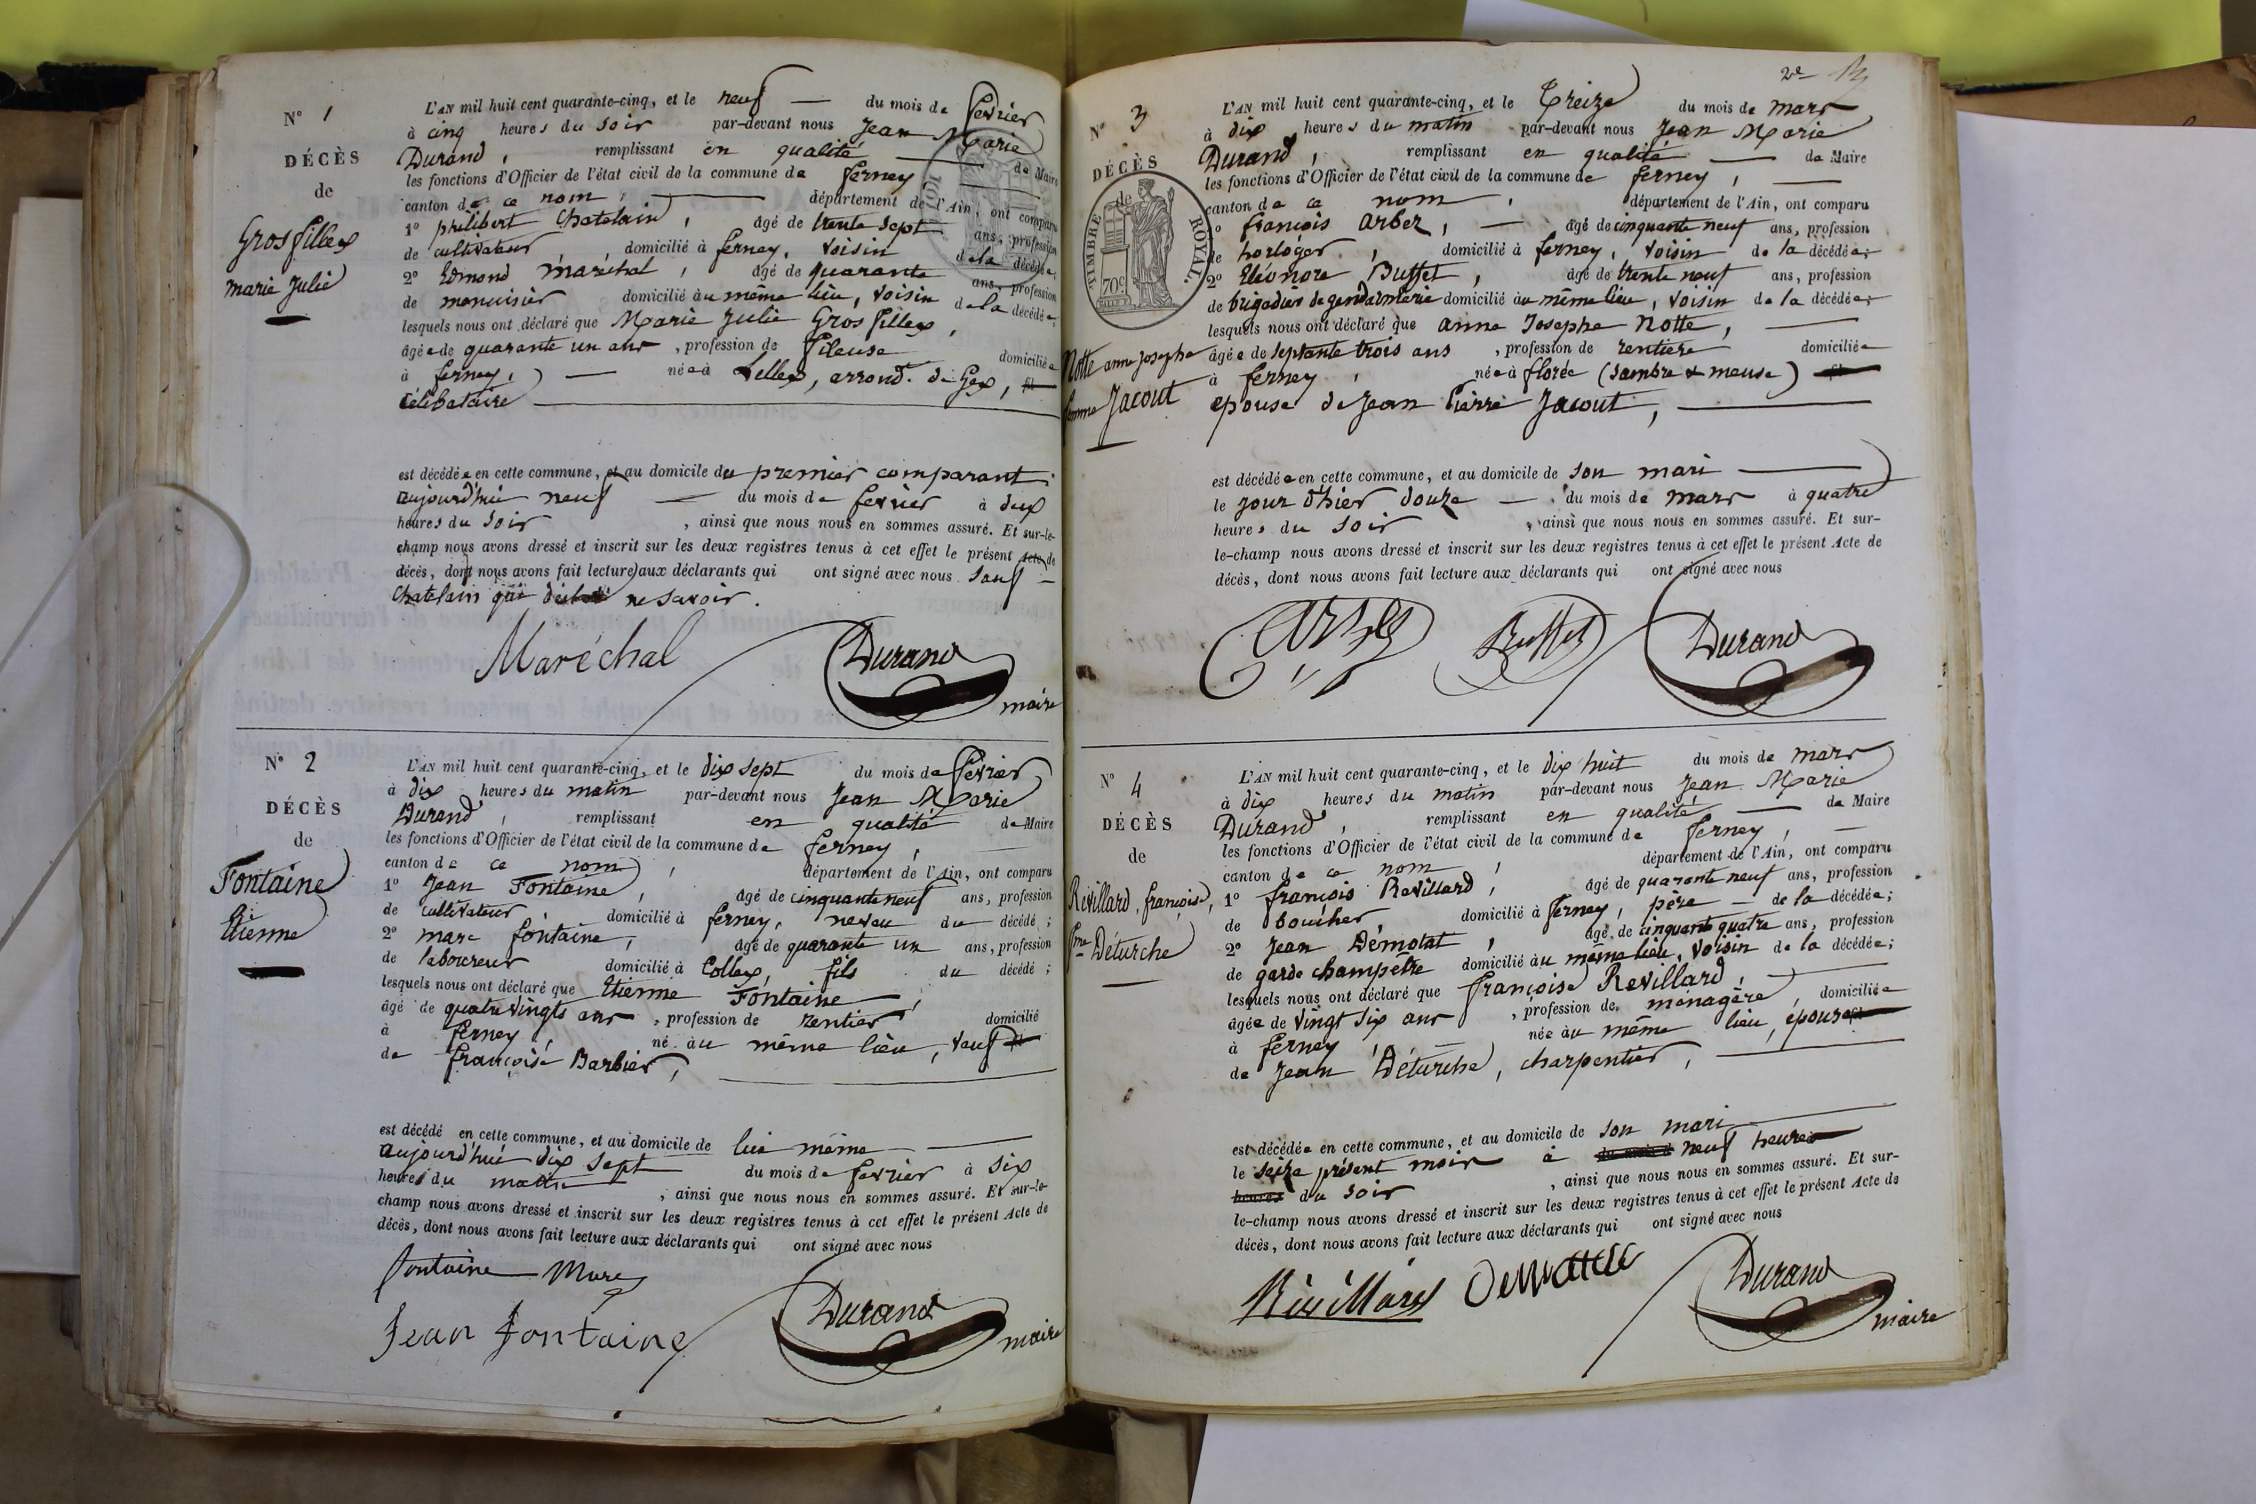 N° 1
DÉCÈS
de
Grosfillex
marie Julie
L'AN mil huit cent quarante-cinq, et le neuf — du mois de fevrier
à cinq heures du soir par-devant nous Jean Marie
Durand, remplissant en qualité — de Maire
les fonctions d'Officier de l'état civil de la commune de ferney
canton de ce nom, — département de l'Ain, ont comparu
1° philibert Chatelain, âgé de trente sept ans, profession
de cultivateur domicilié à ferney, voisin de la décédée,
2° Edmond maréchal, âgé de quarante ans, profession
de menuisier domicilié au même lieu, voisin de la décédée,
lesquels nous ont déclaré que Marie Julie Grosfillex,
âgée de quarante un ans, profession de fileuse domiciliée
à ferney, — née à , arrond. de Gex, fil
célibataire —
est décédée en cette commune, et au domicile du premier comparant
aujourd'hui neuf — du mois de fevrier à deux
heures du soir, ainsi que nous nous en sommes assuré. Et sur-le-
champ nous avons dressé et inscrit sur les deux registres tenus à cet effet le présent Acte de
décès, dont nous avons fait lecture aux déclarants qui ont signé avec nous sauf —
Chatelain qui ne savoir.
Maréchal Durand
maire
N° 2
DÉCÈS
de
Fontaine
Etienne
L'AN mil huit cent quarante-cinq, et le dix sept du mois de fevrier
à dix heures du matin par-devant nous Jean Marie
Durand, remplissant en qualité de Maire
les fonctions d'Officier de l'état civil de la commune de ferney, —
canton de ce nom, département de l'Ain, ont comparu
1° Jean Fontaine, âgé de cinquante neuf ans, profession
de cultivateur domicilié à ferney, neveu du décédé;
2° marc fontaine, âgé de quarante un ans, profession
de laboureur domicilié à Collex, fils du décédé;
lesquels nous ont déclaré que Etienne Fontaine,
âgé de quatre vingts ans, profession de rentier domicilié
à ferney, né au même lieu, veuf fil
de françoise Barbier, —
est décédé en cette commune, et au domicile de lui même —
aujourd'hui dix sept du mois de fevrier à six
heures du matin, ainsi que nous nous en sommes assuré. Et sur-le-
champ nous avons dressé et inscrit sur les deux registres tenus à cet effet le présent Acte de
décès, dont nous avons fait lecture aux déclarants qui ont signé avec nous
fontaine Marc
Jean fontaine Durand
maire
2e
N° 3
DÉCÈS
de
TIMBRE ROYAL.
70c
Notte anne Josephe
femme Jacout
L'AN mil huit cent quarante-cinq, et le treize du mois de mars
à dix heures du matin par-devant nous Jean Marie
Durand, remplissant en qualité — de Maire
les fonctions d'Officier de l'état civil de la commune de ferney, —
canton de ce nom, département de l'Ain, ont comparu
1° françois arbez, — âgé de cinquante neuf ans, profession
de horloger, domicilié à ferney, voisin de la décédée;
2° Eléonore Buffet, âgé de trente neuf ans, profession
de brigadier de gendarmerie domicilié au même lieu, voisin de la décédée;
lesquels nous ont déclaré que anne Josephe Notte, —
âgée de septante trois ans, profession de rentiere domiciliée
à ferney, née à florée (sambre & meuse) fil
epouse de Jean Pierre Jacout, —
est décédée en cette commune, et au domicile de son mari —
le jour d'hier douze — du mois de mars à quatre
heures du soir, ainsi que nous nous en sommes assuré. Et sur-
le-champ nous avons dressé et inscrit sur les deux registres tenus à cet effet le présent Acte de
décès, dont nous avons fait lecture aux déclarants qui ont signé avec nous
Arbez Buffet Durand
N° 4
DÉCÈS
de
Révillard, françoise,
fme Déturche
L'AN mil huit cent quarante-cinq, et le dix huit du mois de mars
à dix heures du matin par-devant nous Jean Marie
Durand, remplissant en qualité — de Maire
les fonctions d'Officier de l'état civil de la commune de ferney, —
canton de ce nom, département de l'Ain, ont comparu
1° françois Revillard, âgé de quarante neuf ans, profession
de boucher domicilié à ferney, père — de la décédée;
2° Jean Démotat, âgé de cinquante quatre ans, profession
de garde champêtre domicilié au même lieu, voisin de la décédée;
lesquels nous ont déclaré que françoise Revillard, —
âgée de vingt six ans, profession de ménagère, domiciliée
à ferney, née au même lieu, epouse fil
de Jean Déturche, charpentier, —
est décédée en cette commune, et au domicile de son mari —
le seize présent mois à du mois d neuf heures
heures du soir, ainsi que nous nous en sommes assuré. Et sur-
le-champ nous avons dressé et inscrit sur les deux registres tenus à cet effet le présent Acte de
décès, dont nous avons fait lecture aux déclarants qui ont signé avec nous
Révillard Durand
maire